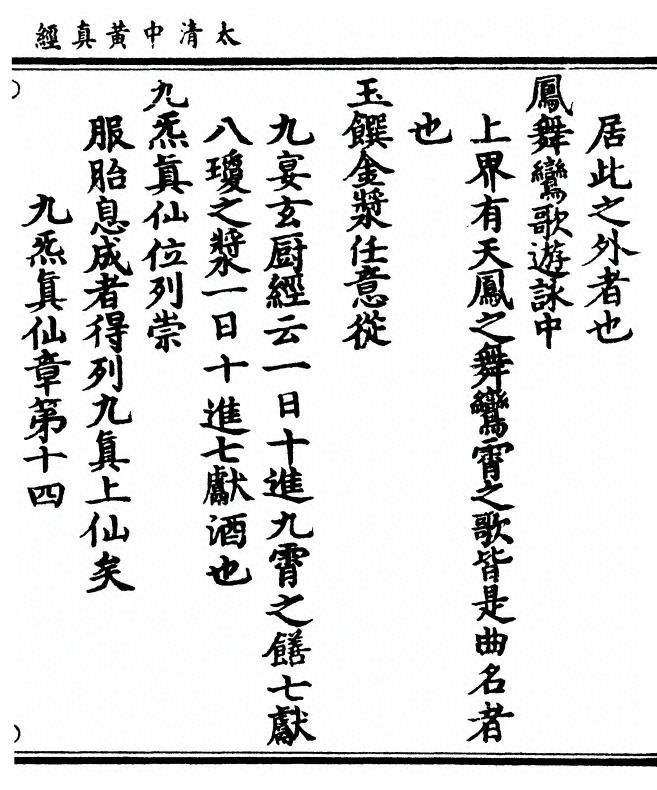 太清中黃真經
居此之外者也
鳳舞鸞歌遊詠中
上界有天鳳之舞鸞霄之歌皆是曲名者
也
玉饌金漿任意從
九宴玄厨經云一日十進九霄之饍七獻
八瓊之漿一日十進七獻酒也
九炁真仙位列崇
服胎息成者得列九真上仙矣
九炁真仙章第十四